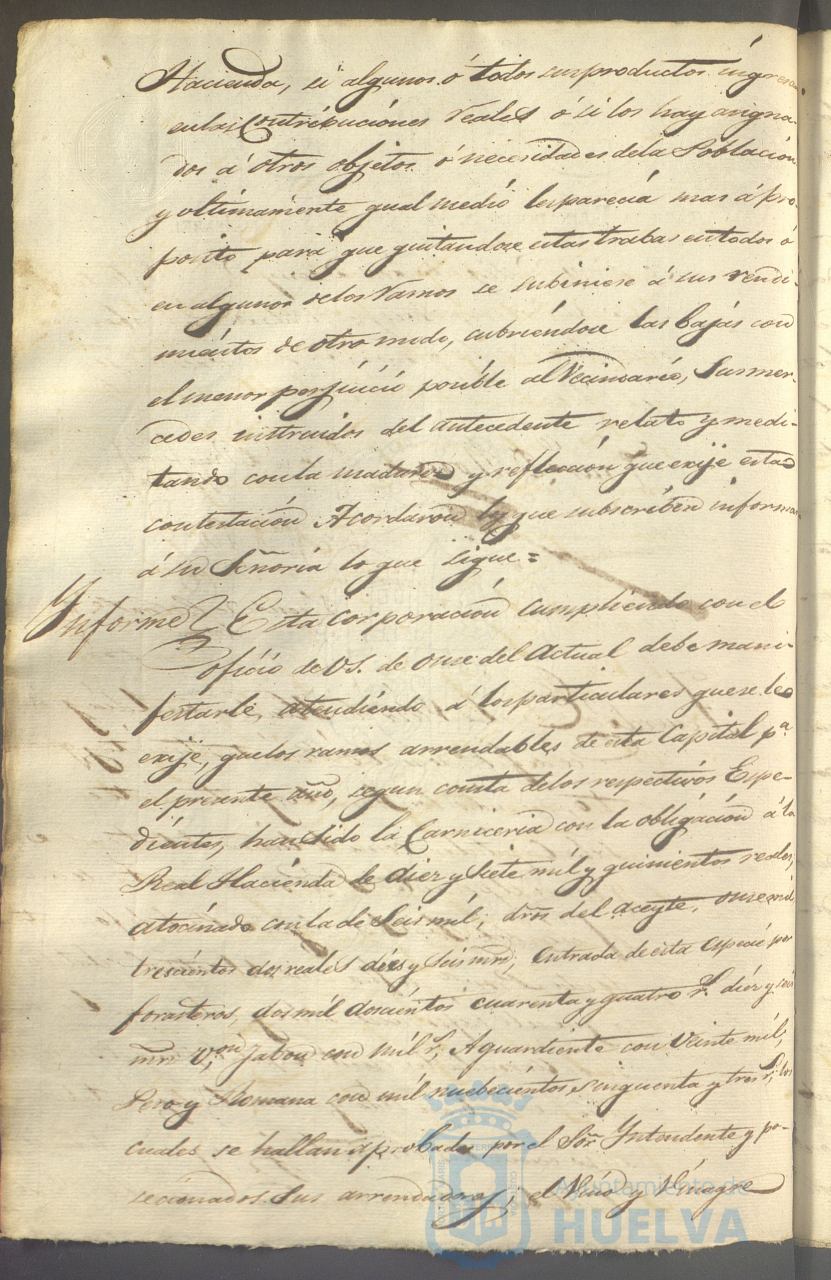 Hacienda, si algunos ó todos sus productos ingresan
en las Contribuciones reales ó si los hay asigna-
dos á otros objetos ó necesidades de la Poblacion
y ultimamente qual medió les parecia mas á pro-
posito para que quitandose estas trabas en todos ó
en algunos de los Ramos se subiniese á sus rendi-
mientos de otro modo, cubriéndose las bajas con
el menor perjuicio posible al Vecindario, Sus mer-
cedes instruidos del antecedente relato y medi-
tando con la madurez y reflección que exije esta
contestación Acordaron los que subscriben informar
á su Señoria lo que sigue =
Informe Esta corporación cumpliendo con el
oficio de VS. de once del Actual debe mani-
festarle, atendiendo á los particulares que se le
exije, que los ramos arrendables de esta Capital pª
el presente año, segun consta de los respectivos Espe-
dientes, han sido la Carniceria con la obligación á la
Real Hacienda de diez y Siete mil y quinientos reales,
atocinado con la de Seis mil; dros del aceyte, once mil
trescientos dos reales diez y seis mrs; entrada de esta especie por
forasteros, dos mil doscientos cuarenta y quatro rs. diez y seis
mrs von; Jabon con mil rs; Aguardiente con Veinte mil;
Peso y Romana con mil nuebecientos sinquenta y tres rs; los
cuales se hallan aprobados por el Sor Intendente y po-
secionados sus arrendadores; el Vino y Vinagre
Ayuntamiento de
HUELVA